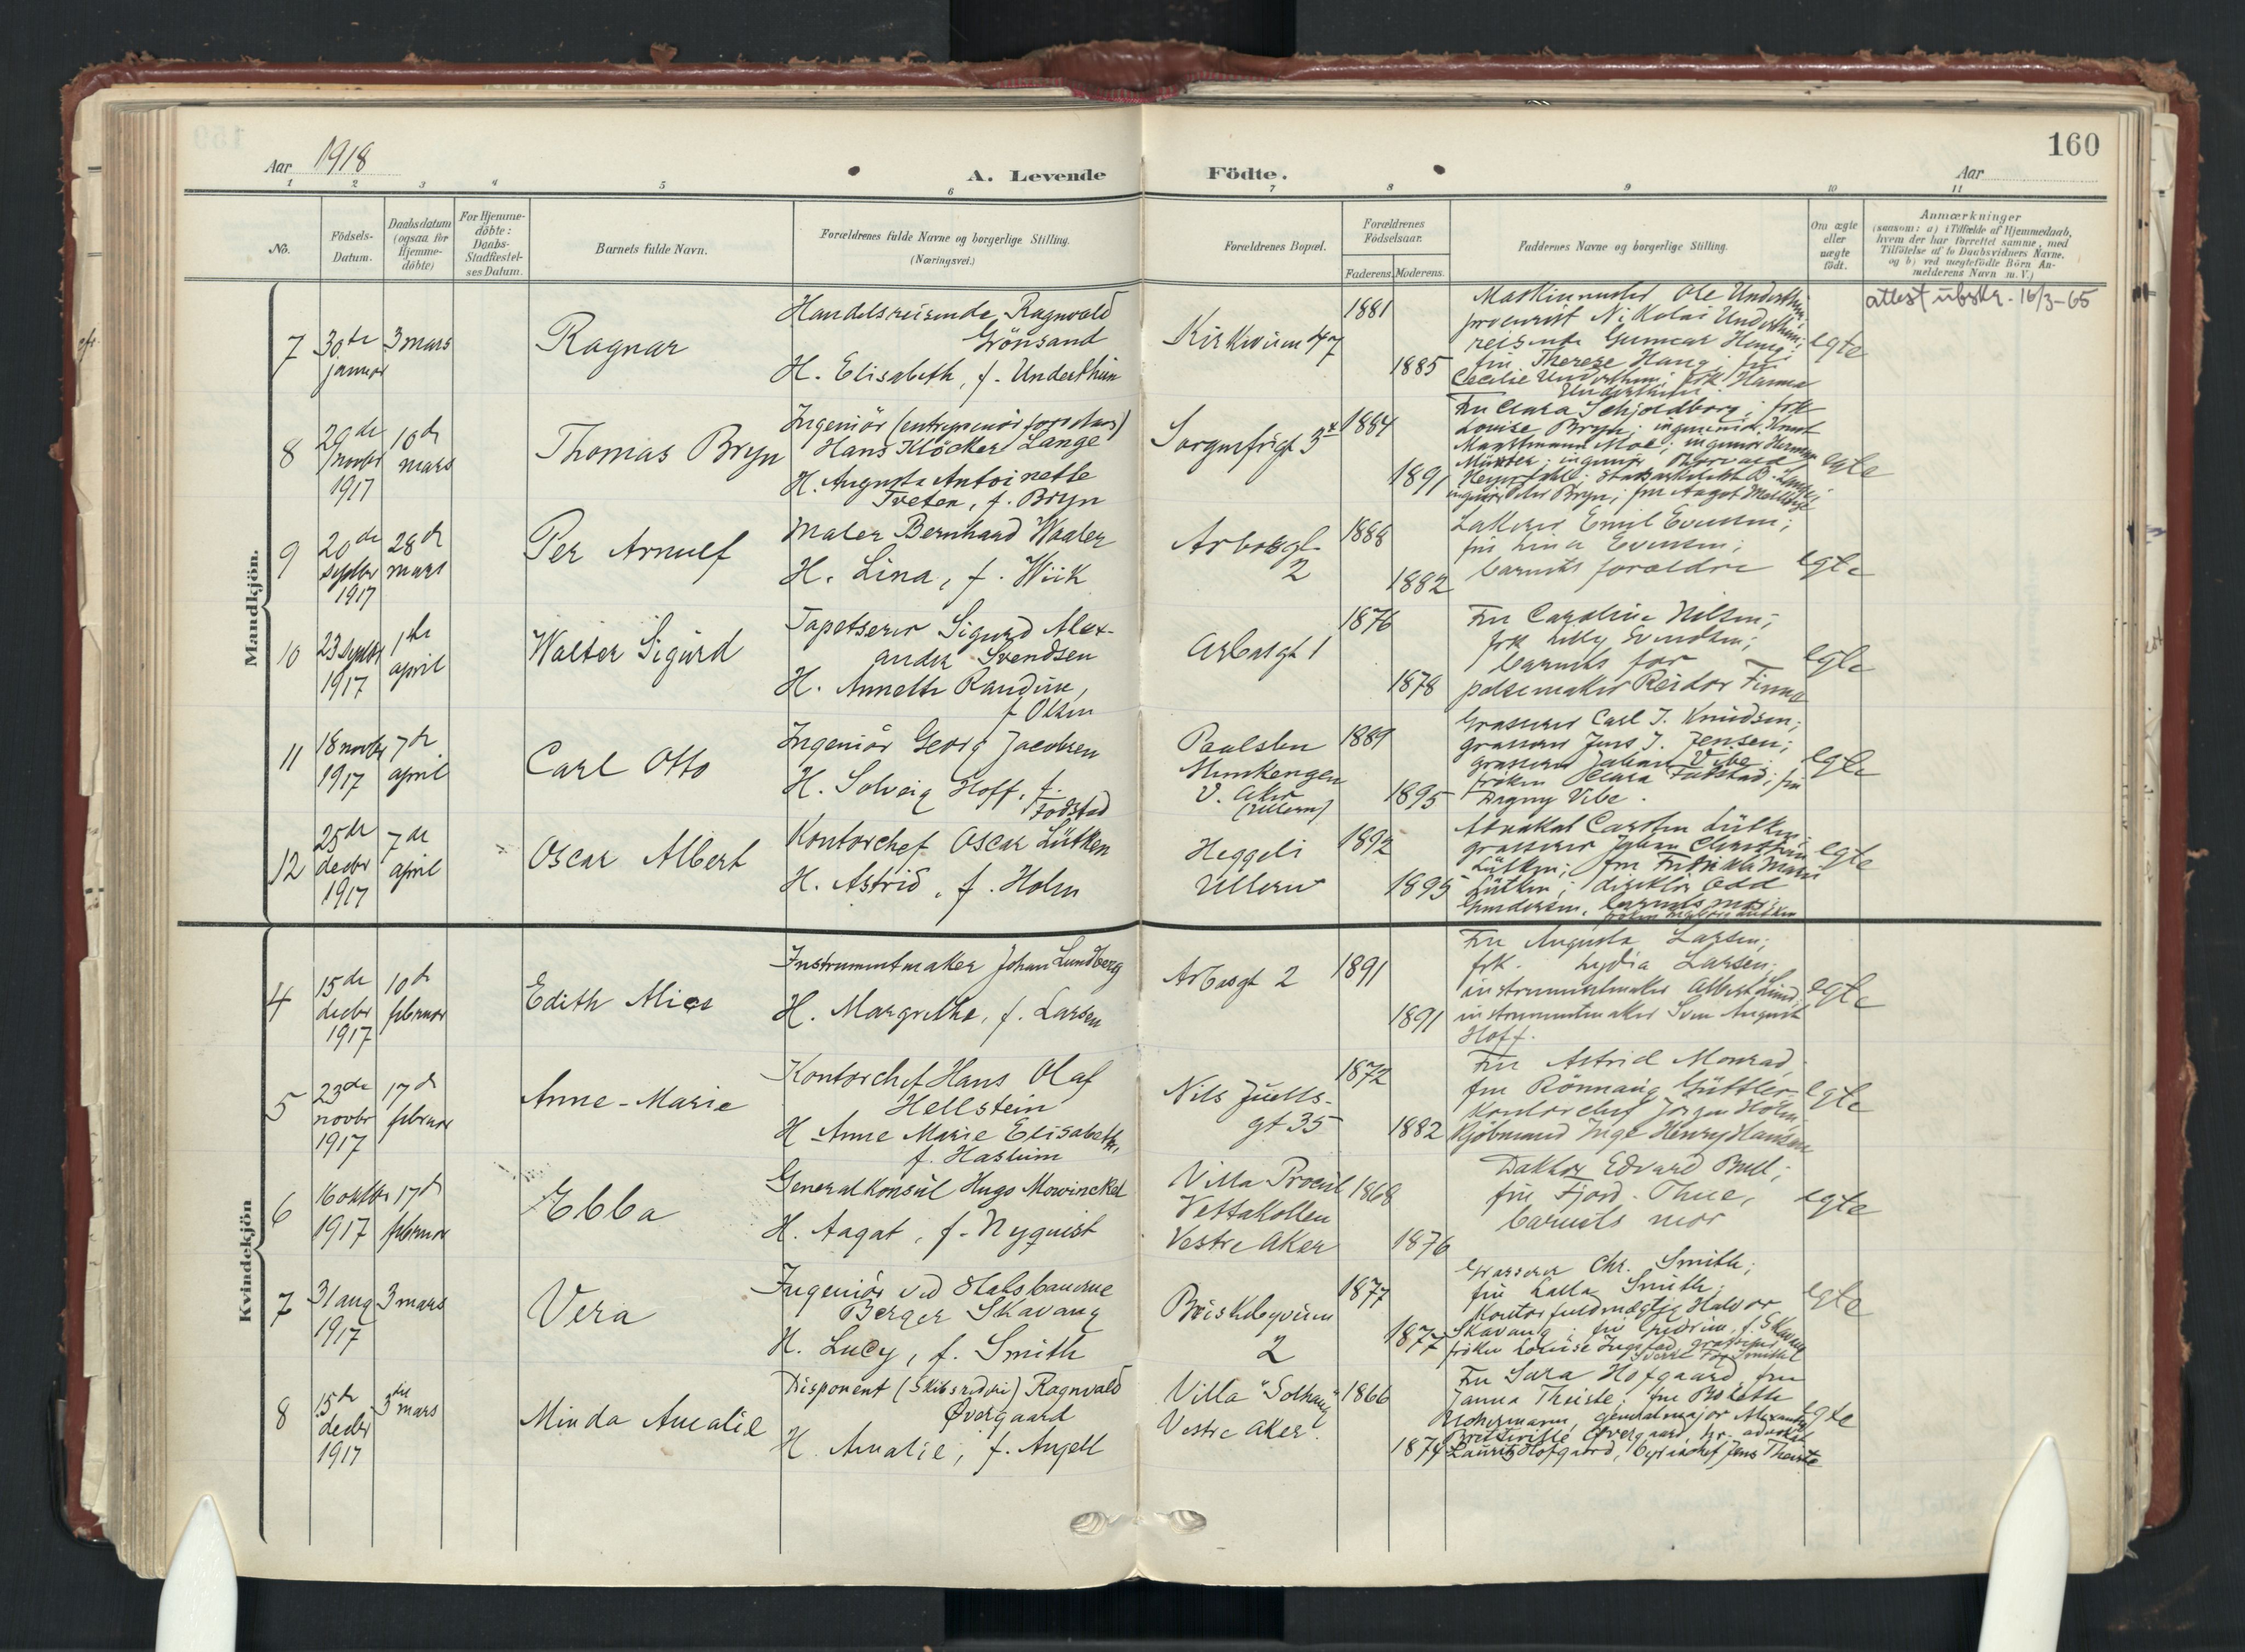 160
Aar 1918
A. Levende Födte.
Aar
1 2 3 4 5 6 7 8 9 10 11
No.
Födsels-Datum.
Daabsdatum (ogsaa for Hjemme-döbte)
For Hjemme-döbte: Daabs-Stadfæstel-ses Datum.
Barnets fulde Navn.
Forældrenes fulde Navne og borgerlige Stilling. (Næringsvei.)
Forældrenes Bopæl.
Forældrenes Födselsaar.
Faderens. Moderens.
Faddernes Navne og borgerlige Stilling.
Om ægte eller uægte födt.
Anmærkninger
(saasom: a) i Tilfælde af Hjemmedaab,
hvem der har forrettet samme, med
Tilföielse af to Daabsvidners Navne.
og b) ved uægtefödte Börn An-
melderens Navn m. V.)
Mandkjön.
7
30te januar
3 mars
Ragnar
Handelsreisende Ragnvald
Grönsand
H. Elisabeth, f. Underthun
Kirkeveien 47
1881
1885
Maskinmester Ole Underthun;
procurist Nikolai Underthun;
reisende Gunnar Haug;
fru Therese Haug; frk
Cecilie Underthun; frk Hanna
Underthun
egte
attest utskr. 16/3-65
8
29de novbr 1917
10de mars
Thomas Bryn
Ingeniör (entreprenörforretn.)
Hans Klöcker Lange
H. Augusta Antoinette
Tveten, f. Bryn
Sorgenfrigt 3
1884
1891
Fru Clara Schjoldborg; frk
Louise Bryn; ingeniör Knut
Moe; ingeniör Herman
Münster; ingeniör Thorvald
Heyerdahl; Statsarkitekt B. Lange;
ingeniör Peter Bryn; fru Aagot
egte
9
20de septbr 1917
28de mars
Per Arnulf
Maler Bernhard Waaler
H. Lina, f. Wiik
Arbosgt. 2
1888
1882
Lakerer Emil Evensen;
fru Lina Evensen;
barnets foreldre
egte
10
23 septbr 1917
1ste april
Walter Sigurd
Tapetserer Sigurd Alex-
ander Svendsen
H. Annette Randine,
f Olsen
Arbosgt 1
1876
1878
Fru Caroline Nilsen;
frk Lilly Svendsen;
barnets far
pølsemaker Reidar Finne
egte
11
18 novbr 1917
7de april
Carl Otto
Ingeniör Georg Jacobsen
H. Solveig Hoff, f.
Fodstad
Paulsbu
Munkengen
V. Aker
(Ullern)
1889
1895
Grosserer Carl J. Knudsen;
grosserer Jens J. Jensen;
grosserer Johan Vibe;
fröken Clara Fodstad; fru
Dagny Vibe.
egte
12
25de decbr 1917
7de april
Oscar Albert
Kontorchef Oscar Lütken
H. Astrid, f. Holm
Heggeli
Ullern
1892
1895
Advokat Carsten Lütken;
grosserer Johan Christian
Lütken; fru Fredrikke Marie
Lütken; direktör Odd
Gundersen, barnets mor;
egte
Kvindekjön
4
15de decbr 1917
10de februar
Edith Alice
Instrumentmaker Johan Lundberg
H. Margrethe, f. Larsen
Arbosgt 2
1891
1891
Fru Augusta Larsen;
frk. Lydia Larsen;
instrumentmaker Albert Lund;
instrumentmaker Sven August
Hoff.
egte
5
23de novbr 1917
17de februar
Anne-Marie
Kontorchef Hans Olaf
Hellstein
H. Anne Marie Elisabeth,
f. Haslum
Nils Juels-
gt 35
1872
1882
Fru Astrid Monrad;
fru Rönnaug Güttler
Kontorchef Jørgen Holm;
Kjöbmand Inge Henry Hansen
egte
6
16 oktbr 1917
17de februar
Ebba
Generalkonsul Hugo Mowinckel
H. Aagot, f. Nyquist
Villa Procul
Vettakollen
Vestre Aker
1868
1876
Doktor Edvard Bull;
fru Fjord-Thue;
barnets mor
egte
7
31 aug 1917
3 mars
Vera
Ingeniör ved Statsbanerne
Berger Skavang
H. Lucy, f. Smith
Briskebyveien
2
1877
1877
Grosserer Chr. Smith;
fru Lalla Smith;
Kontorfuldmægtig Halvor
Skavang; fru Gudrun, f. Skavang
fröken Louise Ingstad, grosserer
egte
8
15de decbr 1917
3die mars
Minda Amalie
Disponent (Skibsrederi) Ragnvald
Øvergaard
H. Amalie, f. Angell
Villa "Solhaug"
Vestre Aker.
1866
1874
Fru Sara Hofgaard, fru
Janna Theiste; fru Bolette
Uchermann, generalmajor Alexander
Bretteville Øvergaard, hr. advokat
Lauritz Hofgaard, byråchef Jens Theiste
egte